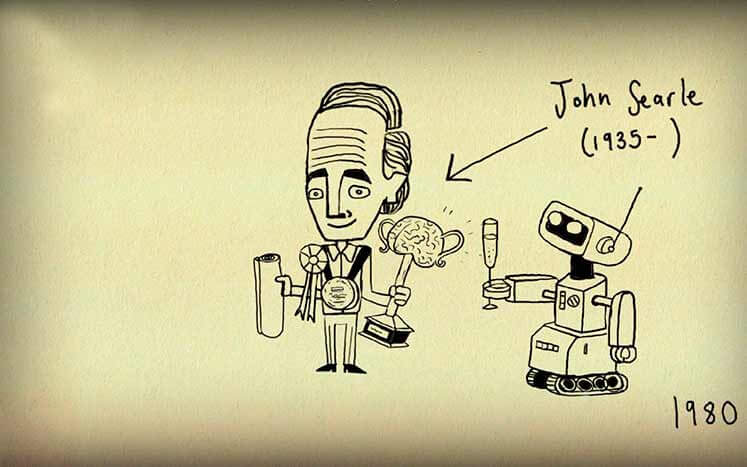 John Searle
(1935- )
1980